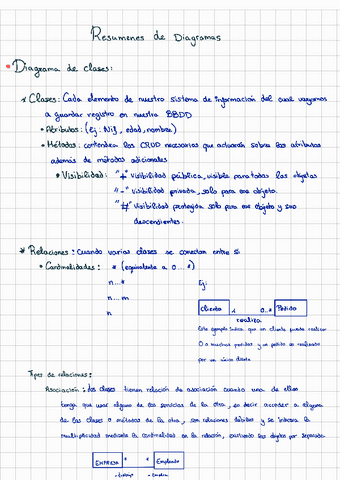 Resumenes de Diagramas
* Diagrama de clases:
* Clases: Cada elemento de nuestro sistema de información del cual vayamos
a guardar registro en nuestra BBDD
* Atributos: (Ej: Nif, edad, nombre)
* Métodos: contendrá los CRUD necesarios que actuarán sobre los atributos
además de métodos adicionales
* Visibilidad: "+" visibilidad pública, visible para todos los objetos
"-" visibilidad privada, solo para ese objeto.
"#" visibilidad protegida solo para ese objeto y sus
descendientes.
* Relaciones: Cuando varias clases se conectan entre sí
* Cardinalidades: * (equivalente a 0...*)
n...*
n...m
n
Ej:
Cliente 1 0..* Pedido
realiza
Este ejemplo indica que un cliente puede realizar
0 o muchos pedidos y un pedido es realizado
por un único cliente
Tipos de relaciones:
Asociación: dos clases tienen relación de asociación cuando una de ellas
tenga que usar alguno de los servicios de la otra, es decir acceder a alguno
de las clases o métodos de la otra, son relaciones débiles y se indica la
multiplicidad mediante la cardinalidad de la relación, los objetos por separado.
EMPRESA * * Empleado